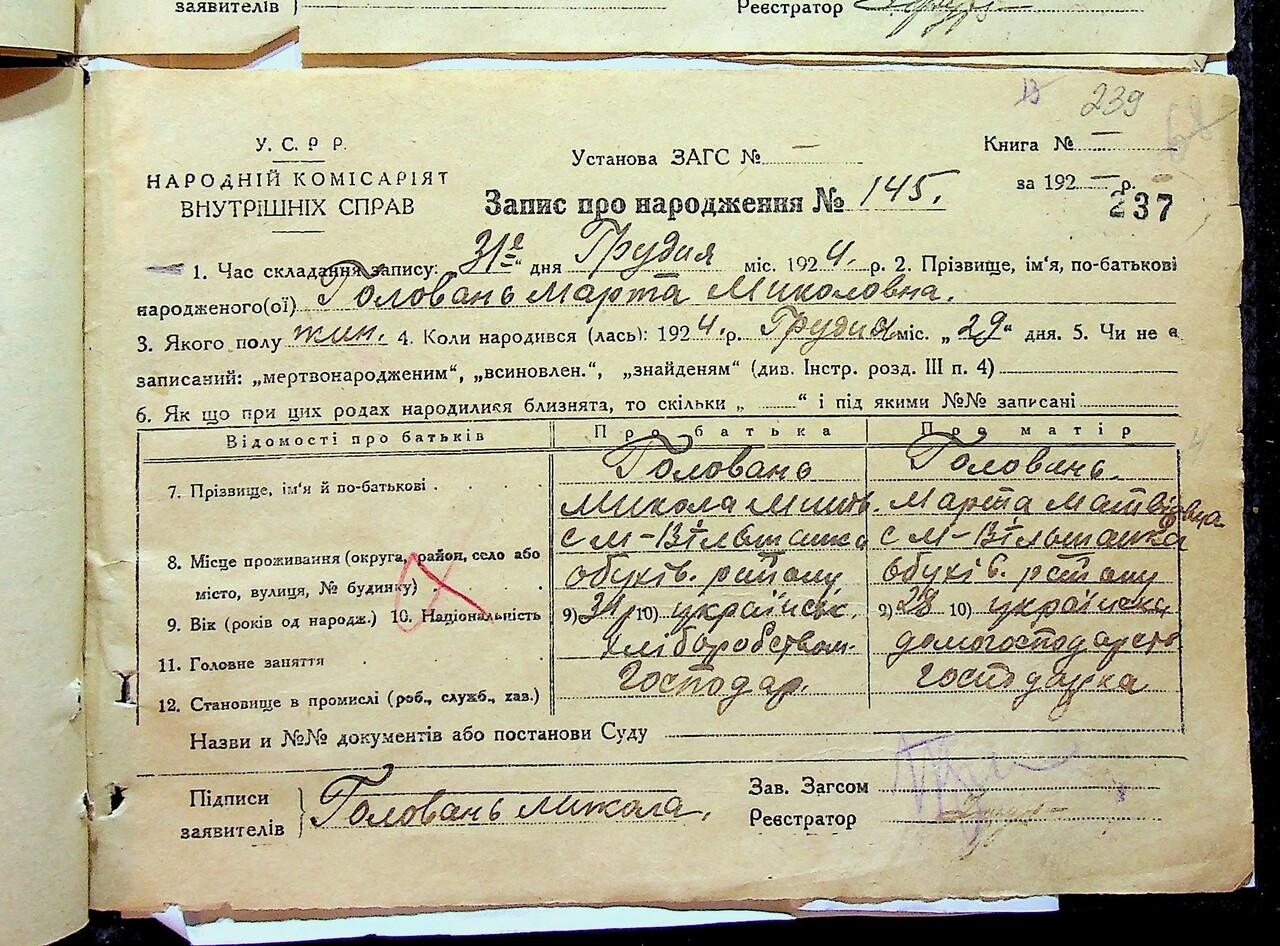 заявителів
Реєстратор
239
У. С. Р Р.
НАРОДНІЙ КОМІСАРІЯТ
ВНУТРІШНІХ СПРАВ
Установа ЗАГС № —
Книга № —
за 192 — р.
Запис про народження № 145.
237
1. Час складання запису: 31го дня Грудня міс. 1924. р. 2. Прізвище, ім'я, по-батькові
народженого(ої) Головань Марта Миколовна.
3. Якого полу жин. 4. Коли народився (лась): 1924. р. Грудня міс. „29“ дня. 5. Чи не є
записаний: „мертвонародженим“, „всиновлен.“, „знайденям“ (див. Інстр. розд. III п. 4)
6. Як що при цих родах народилися близнята, то скільки „ “ і під якими №№ записані
Відомості про батьків Про батька Про матір
7. Прізвище, ім'я й по-батькові Головань Головань.
Микола Марта Матвіівна
8. Місце проживання (округа, район, село або с М-Вільшанка с М-Вільшанка
місто, вулиця, № будинку) обухів. району обухів. району
9. Вік (років од народж.) 10. Національність 9) 10) українськ. 9) 28 10) українска
11. Головне заняття хліборобством.
12. Становище в промислі (роб., служб., хаз.) Господар. господарка
Назви и №№ документів або постанови Суду
Підписи
заявителів
Головань Микола.
Зав. Загсом
Реєстратор